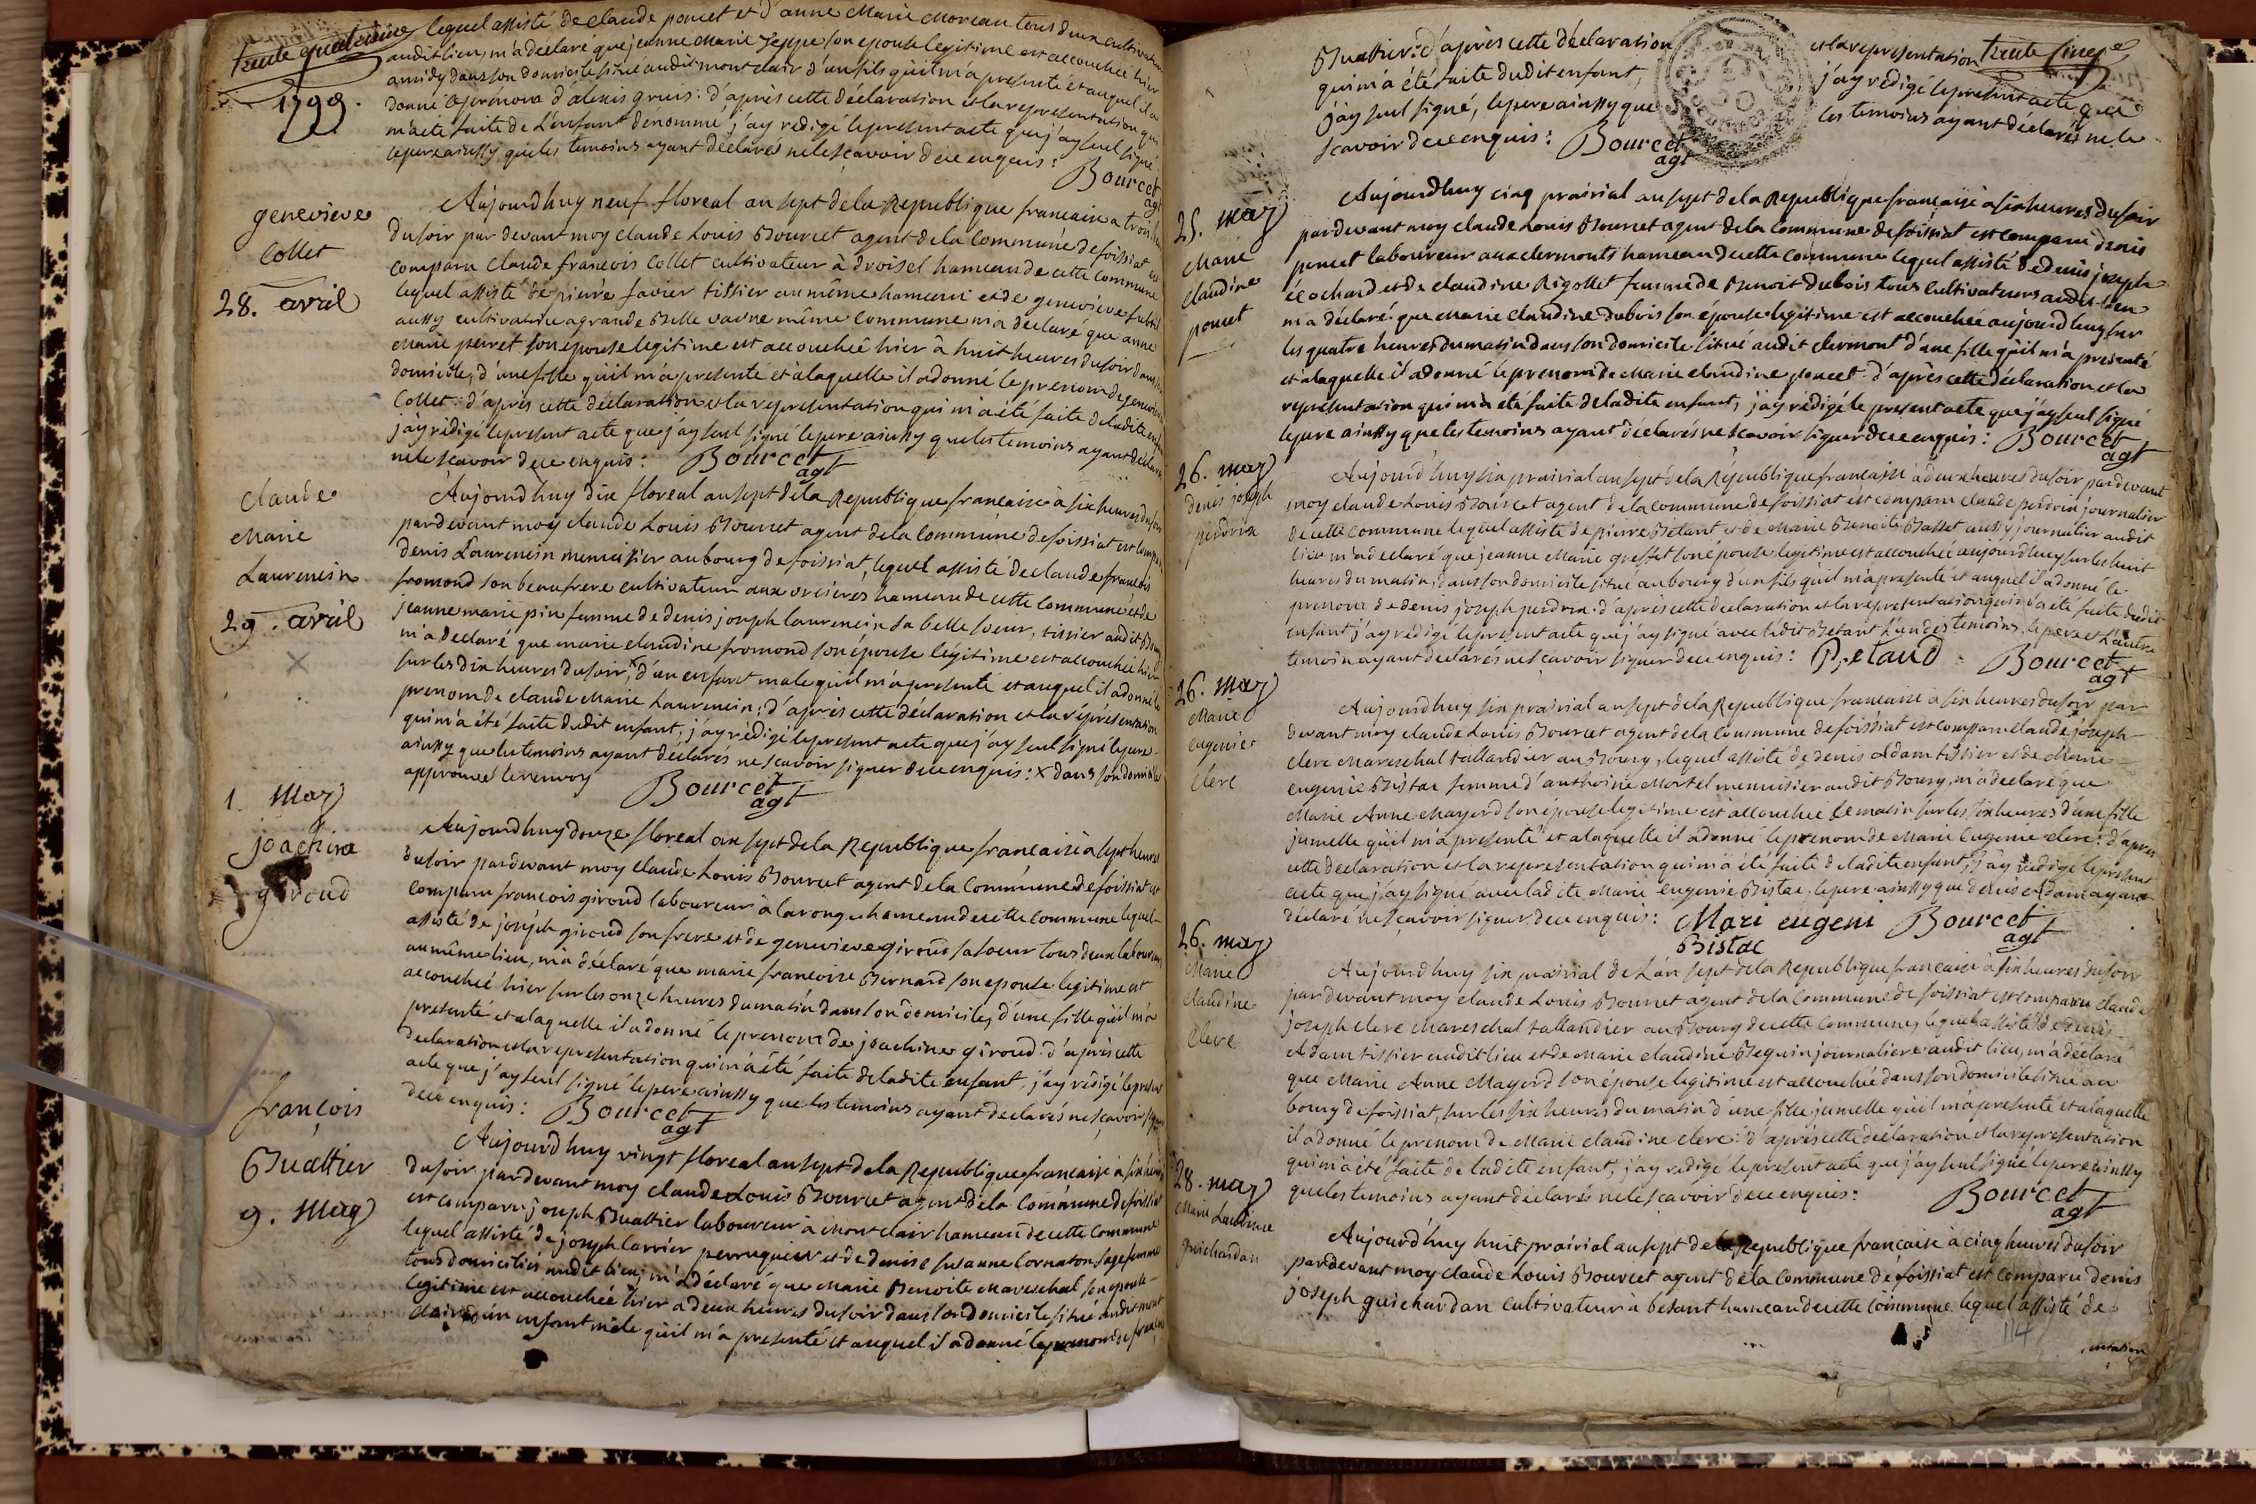 trente quatrieme
1799.
lequel assisté de claude poncet et d'anne Marie Moreau tous deux cultivateurs
audit lieu, m'a declaré que jeanne Marie son epouse legitime est accouchée hier
a midy dans son domicile situé audit mont clair d'un fils qu'il m'a presenté et auquel il a
donné le prénom d'alexis gruis: d'après cette déclaration et la representation qui
m'a été faite de L'enfant denommé, j'ay redigé le present acte que j'ay seul signé
le pere ainssy que les temoins ayant declarés ne le scavoir de ce enquis: Bourcet
agt
genevieve
Collet
28. avril
Aujourdhuy neuf floreal an sept de la Republique francaise a trois
du soir par devant moy claude Louis Bourcet agent de la Commune de foissiat est
comparu claude francois Collet cultivateur à droisel hameau de cette commune
lequel assisté de pierre favier tissier au même hameau et de genevieve
aussy cultivatrice a grande Belle vavre même commune m'a déclaré que anne
Marie peuret son épouse legitime est accouchée hier à huit heures du soir dans son
domicile, d'une fille qu'il m'a presenté et a laquelle il a donné le prenom de genevieve
Collet: d'après cette déclaration et la representation qui m'a été faite de ladite enfant
j'ay redigé le present acte que j'ay seul signé le pere ainssy que les temoins ayant declaré
ne le scavoir de ce enquis: Bourcet
agt
Claude
Marie
Laurencin
29. avril
×
Aujourdhuy dix floreal an sept de la Republique francaise à six heures du soir
pardevant moy claude Louis Bourcet agent de la Commune de foissiat est comparu
denis Laurencin menuisier au bourg de foissiat, lequel assisté de claude francois
fromond son beaufrere cultivateur aux orcieres hameau de cette commune et de
jeanne marie pin femme de denis joseph laurencin sa belle soeur, tissier audit Bourg
m'a declaré que marie claudine fromond son épouse legitime est accouchée hier
sur les dix heures du soir, × d'un enfant male qu'il m'a presenté et auquel il a donné le
prenom de claude Marie Laurencin; d'après cette déclaration et la réprésentation
qui m'a été faite dudit enfant, j'ay redigé le present acte que j'ay seul signé le pere
ainssy que les temoins ayant déclarés ne scavoir signer de ce enquis: × dans son domicile
approuvé le renvoy Bourcet
agt
1. May
joachine
giroud
Aujourdhuy douze floreal an sept de la Republique francaise à sept heures
du soir pardevant moy claude Louis Bourcet agent de la Commune de foissiat est
comparu françois giroud laboureur à la ronge hameau de cette commune lequel
assisté de joséph giroud son frere et de genevieve giroud sa soeur tous deux laboureurs
au même lieu, m'a déclaré que marie francoise Bernard son epouse legitime est
accouchée hier sur les onze heures du matin dans son domicile, d'une fille qu'il m'a
presenté et a laquelle il a donné le prenom de joachine giroud: d'après cette
declaration et la representation qui m'a été faite de ladite enfant, j'ay redigé le present
acte que j'ay seul signé le pere ainssy que les temoins ayant declarés ne scavoir signer
de ce enquis: Bourcet
agt
françois
Buattier
9. May
Aujourdhuy vingt floreal an sept de la Republique francaise à six heures
du soir pardevant moy claude Louis Bourcet agent de la Commune de foissiat
est comparu joseph Buattier laboureur à Mont clair hameau de cette commune
lequel assisté de joseph larvier perruquier et de denise susanne Cornaton sage femme
tous domiciliés audit lieu, m'a déclaré que Marie Benoite Mareschal son epouse
legitime est accouchée hier a deux heures du soir dans son domicile situé audit mont
clair d'un enfant mâle qu'il m'a presenté et auquel il a donné le prenom de françois
trente cinqe
Buattier: d'après cette déclaration et la representation
qui m'a été faite dudit enfant, j'ay redigé le present acte que
j'ay seul signé, le pere ainssy que les temoins ayant déclarés ne le
scavoir de ce enquis: Bourcet
agt
25. may
Marie
Claudine
poncet
Aujourdhuy cinq prairial an sept de la Republique française à six heures du soir
pardevant moy claude Louis Bourcet agent de la Commune de foissiat est comparu denis
poncet laboureur aux clermonts hameau de cette commune lequel assisté de denis joseph
écochard et de claudine Rigollet femme de Benoit dubois tous Cultivateurs audit lieu
m'a déclaré que Marie Claudine dubois son épouse legitime est accouchée aujourdhuy sur
les quatre heures du matin dans son domicile situé audit clermont d'une fille qu'il m'a presenté
et a laquelle il a donné le prenom de Marie claudine poncet: d'après cette déclaration et la
representation qui m'a été faite de ladite enfant, j'ay redigé le present acte que j'ay seul signé
le pere ainssy que les temoins ayant declarés ne scavoir signer de ce enquis: Bourcet
agt
26. may
denis joseph
perdrix
Aujourd'huy six prairial an sept de la République francaise à deux heures du soir pardevant
moy claude Louis Bourcet agent de la commune de foissiat est comparu claude perdrix journalier
de cette commune lequel assisté de pierre Betant et de Marie Benoite Basset aussy journalier audit
lieu m'a declaré que jeanne Marie greffet son épouse legitime est accouchée aujourdhuy sur les huit
heures du matin, dans son domicile situé au bourg d'un fils qu'il m'a presenté et auquel il a donné le
prenom de denis joseph perdrix: d'après cette declaration et la representation qui m'a été faite dudit
enfant j'ay redigé le present acte que j'ay signé avec ledit Betant L'un des temoins, le pere et L'autre
temoin ayant declarés ne scavoir signer de ce enquis: Betand Bourcet
agt
26. May
Marie
eugenie
Clerc
Aujourd'huy six prairial an sept de la Republique francaise à six heures du soir par
devant moy claude Louis Bourcet agent de la Commune de foissiat est comparu Claude joseph
clerc Mareschal taillandier au Bourg, lequel assisté de denis Adam tissier et de Marie
eugenie Bistac femme d'anthoine Mortel menuisier audit Bourg, m'a declaré que
Marie Anne Mayerd son épouse legitime est accouchée ce matin sur les six heures d'une fille
jumelle qu'il m'a presenté et a laquelle il a donné le prenom de Marie Eugenie clerc: d'après
cette declaration et la representation qui m'a été faite de ladite enfant, j'ay redigé le present
acte que j'ay signé avec ladite Marie Eugenie Bistac, le pere ainssy que denis Adam ayant
déclaré ne scavoir signer de ce enquis: Mari eugeni Bourcet
Bistac agt
26. may
Marie
Claudine
Clerc
Aujourdhuy six prairial de L'an sept de la Republique francaise à six heures du soir
pardevant moy claude Louis Bourcet agent de la Commune de foissiat est comparu claude
joseph clerc Mareschal taillandier au Bourg de cette Commune, lequel assisté de denis
Adam tissier audit lieu et de Marie claudine Beguin journaliere audit lieu, m'a déclaré
que Marie Anne Mayerd son épouse legitime est accouchée dans son domicile situé au
bourg de foissiat, sur les six heures du matin d'une fille jumelle qu'il m'a presenté et a laquelle
il a donné le prenom de Marie claudine clerc: d'après cette déclaration et la representation
qui m'a été faite de ladite enfant, j'ay redigé le present acte que j'ay seul signé le pere ainssy
que les temoins ayant déclarés ne le scavoir de ce enquis: Bourcet
agt
28. may
Marie Laurence
guichardan
Aujourd'huy huit prairial an sept de la Republique francaise à cinq heures du soir
pardevant moy Claude Louis Bourcet agent de la Commune de foissiat est comparu denis
joseph guichardan Cultivateur à besant hameau de cette commune lequel assisté de
114